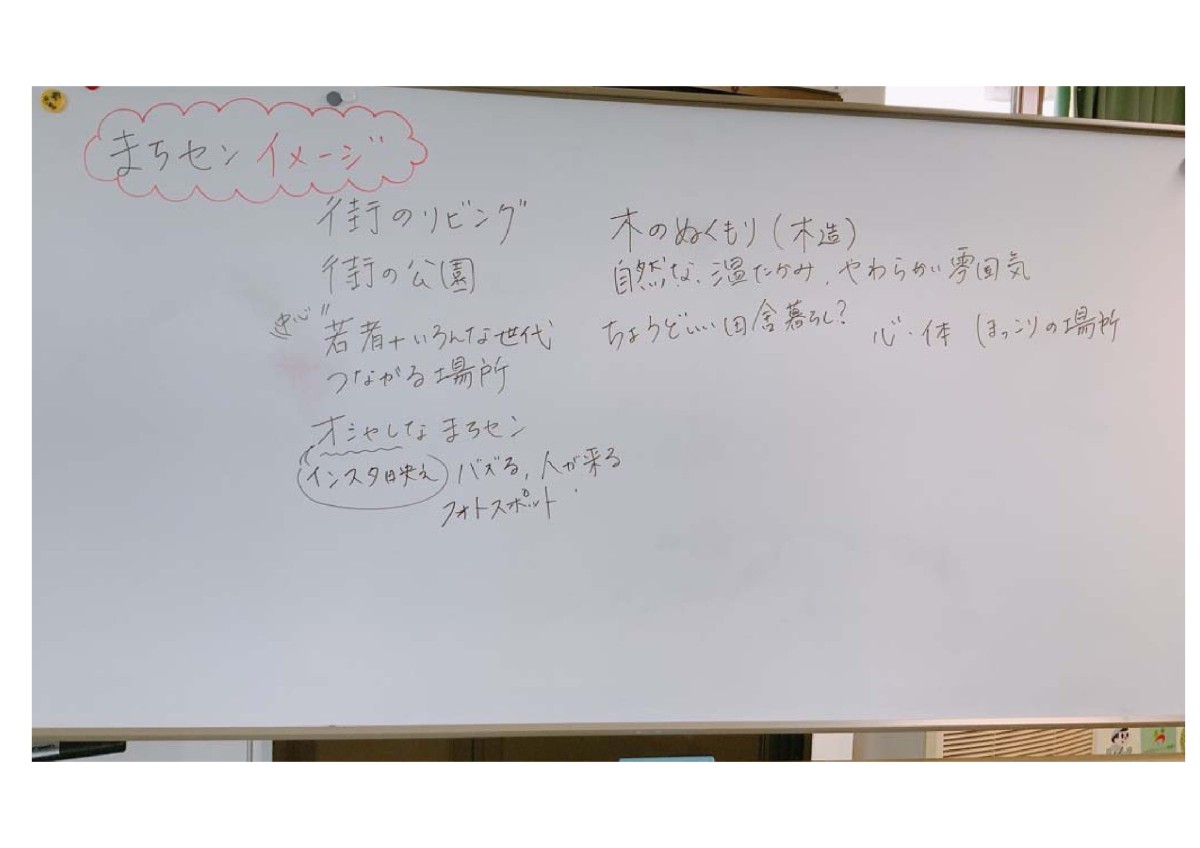 まちセン イメージ
街のリビング
街の公園
中心
若者+いろんな世代
つながる場所
オシャレな まちセン
インスタ映え バズる, 人が来る
フォトスポット
木のぬくもり(木造)
自然な、温たかみ、やわらかい雰囲気
ちょうどいい田舎暮らし?
心・体 ほっこりの場所